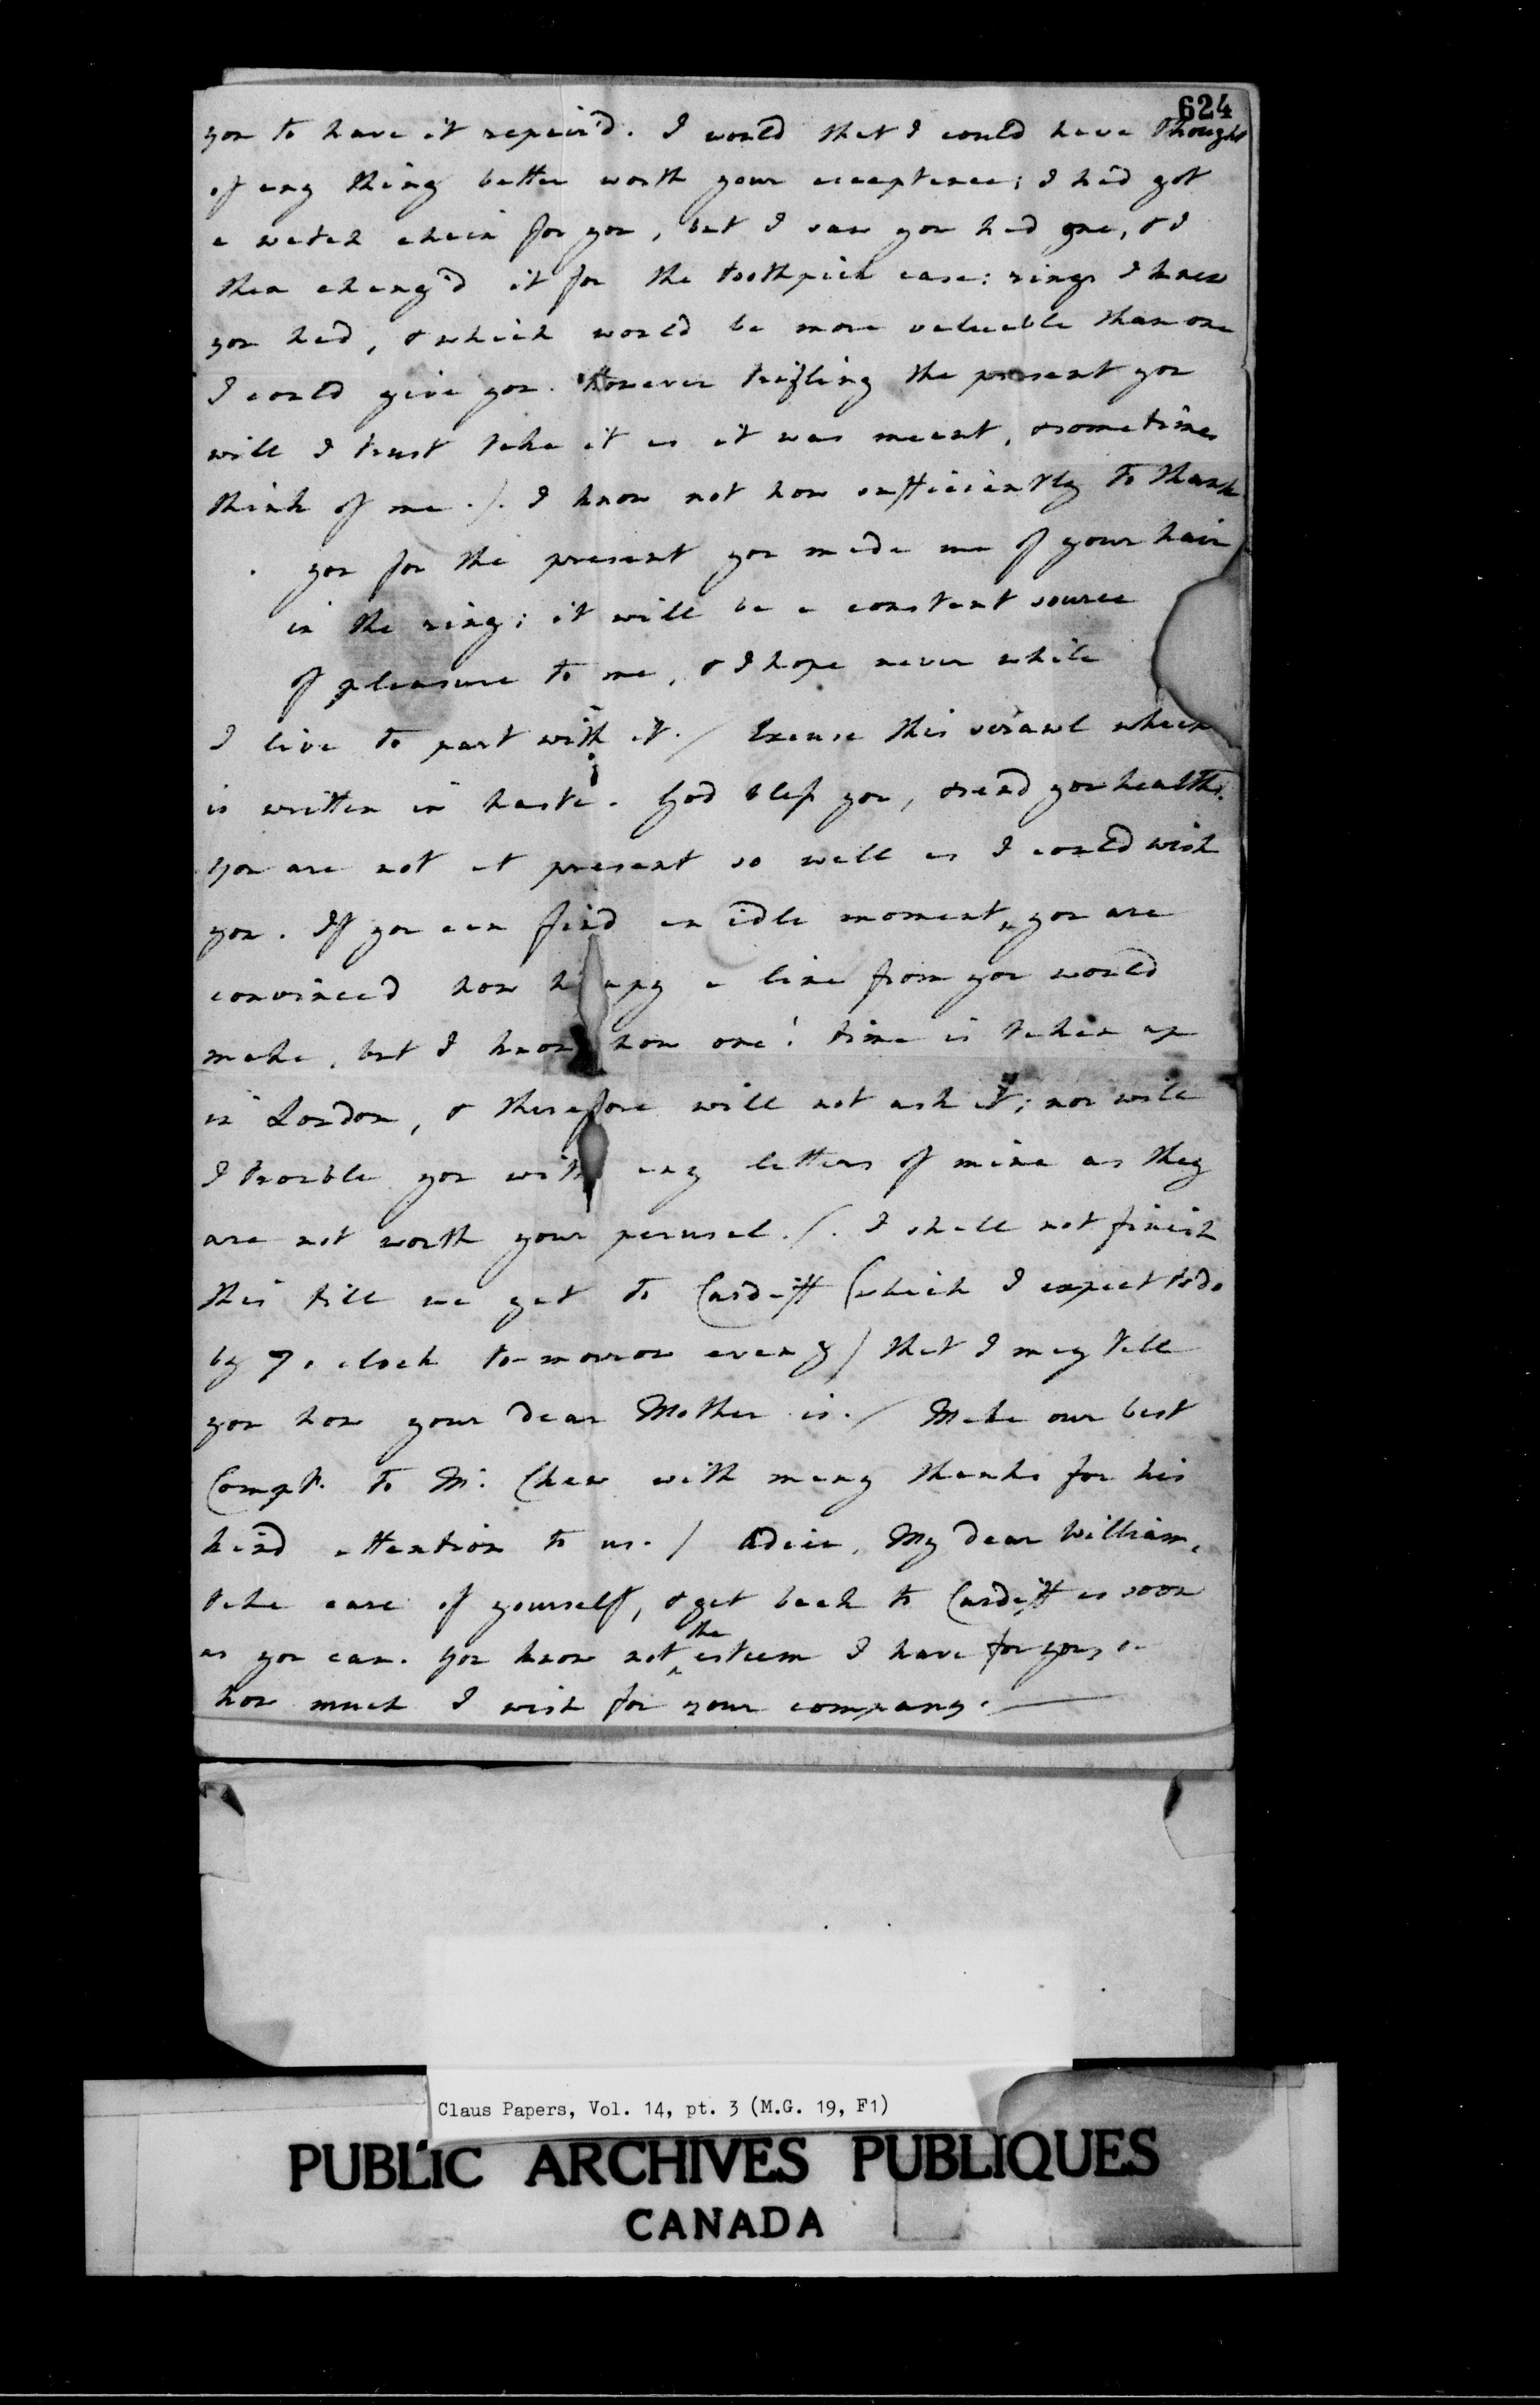 624
you to have it repair'd. I would that I could have thought
of any thing better worth your acceptance; I had got
a watch chain for you, but I saw you had one, & I
then chang'd it for the toothpick case: rings I knew
you had, & which would be more valuable than one
I could give you. However trifling the present you
will I trust take it as it was meant, & sometimes
think of me./. I know not how sufficiently to thank
you for the present you made me of your hair
in the ring; it will be a constant source
of pleasure to me, & I hope never while
I live to part with it./ Excuse this scrawl which
is written in haste. God bless you, & send you health.
You are not at present so well as I could wish
you. If you can find an idle moment, you are
convinced how happy a line from you would
make, but I know how one's time is taken up
in London, & therefore will not ask it; nor will
I trouble you with any letters of mine as they
are not worth your perusal./. I shall not finish
this till we get to Cardiff (which I expect to do
by 7 o clock to-morrow eveng) that I may tell
you how your dear Mother is./ Make our best
Compts. to Mr. Chew with many thanks for his
kind attention to us./ Adieu, My dear William,
take care of yourself, & get back to Cardiff as soon
as you can. You know not the esteem I have for you, or
how much I wish for your company.
Claus Papers, Vol. 14, pt. 3 (M.G. 19, F1)
PUBLIC ARCHIVES PUBLIQUES
CANADA